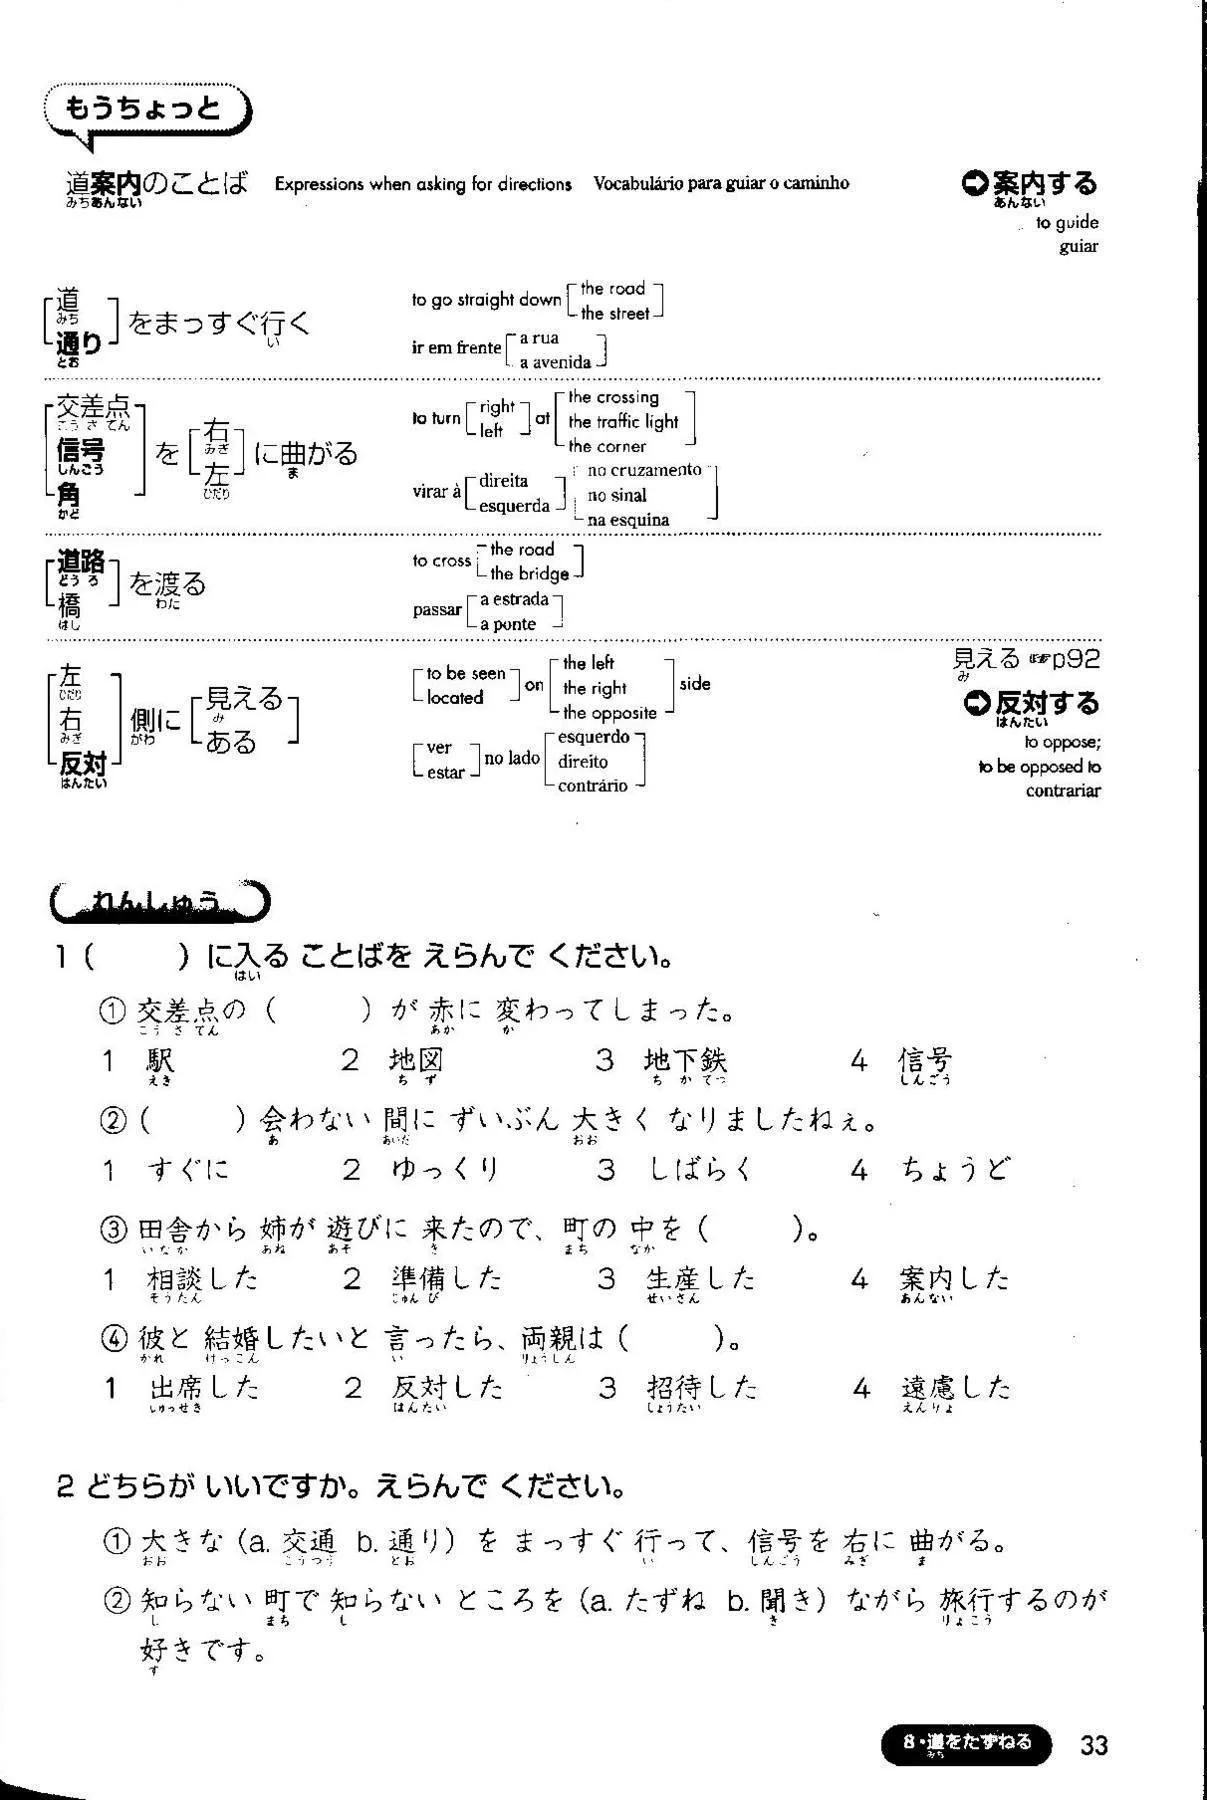 もうちょっと
道案内のことば Expressions when asking for directions Vocabulário para guiar o caminho ➡案内する
みちあんない あんない
to guide
guiar
道 みち
通り とお
をまっすぐ行く い
to go straight down the road the street
ir em frente a rua a avenida
交差点 こうさてん
信号 しんごう
角 かど
を 右 みぎ 左 ひだり に曲がる ま
to turn right left at the crossing the traffic light the corner
virar à direita esquerda no cruzamento no sinal na esquina
道路 どうろ
橋 はし
を渡る わた
to cross the road the bridge
passar a estrada a ponte
左 ひだり
右 みぎ
反対 はんたい
側に がわ 見える み ある
to be seen located on the left the right the opposite side
ver estar no lado esquerdo direito contrário
見える ☞p92
み
➡反対する
はんたい
to oppose;
to be opposed to
contrariar
れんしゅう
1 ( ) に入る ことばを えらんで ください。
はい
① 交差点の ( ) が 赤に 変わってしまった。
こうさてん あか か
1 駅 2 地図 3 地下鉄 4 信号
えき ちず ちかてつ しんごう
② ( ) 会わない 間に ずいぶん 大きく なりましたねぇ。
あ あいだ おお
1 すぐに 2 ゆっくり 3 しばらく 4 ちょうど
③ 田舎から 姉が 遊びに 来たので、町の 中を ( )。
いなか あね あそ き まち なか
1 相談した 2 準備した 3 生産した 4 案内した
そうだん じゅんび せいさん あんない
④ 彼と 結婚したいと 言ったら、両親は ( )。
かれ けっこん い りょうしん
1 出席した 2 反対した 3 招待した 4 遠慮した
しゅっせき はんたい しょうたい えんりょ
2 どちらが いいですか。えらんで ください。
① 大きな (a. 交通 b. 通り) を まっすぐ 行って、信号を 右に 曲がる。
おお こうつう とお い しんごう みぎ ま
② 知らない 町で 知らない ところを (a. たずね b. 聞き) ながら 旅行するのが
し まち し き りょこう
好きです。
す
8・道をたずねる 33
みち